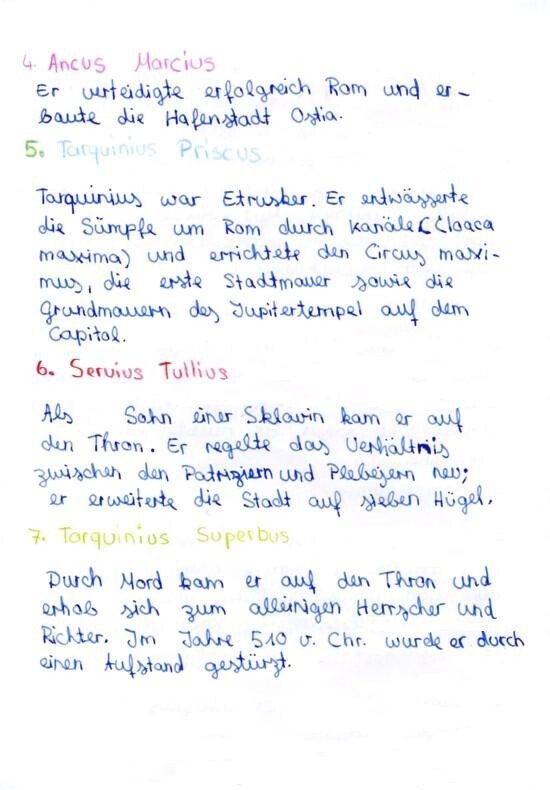 4. Ancus Marcius
Er verteidigte erfolgreich Rom und er-
baute die Hafenstadt Ostia.
5. Tarquinius Priscus
Tarquinius war Etrusker. Er entwässerte
die Sümpfe um Rom durch Kanäle (Cloaca
maxima) und errichtete den Circus maxi-
mus, die erste Stadtmauer sowie die
Grundmauern des Jupitertempel auf dem
Capitol.
6. Servius Tullius
Als Sohn einer Sklavin kam er auf
den Thron. Er regelte das Verhältnis
zwischen den Patriziern und Plebejern neu;
er erweiterte die Stadt auf sieben Hügel.
7. Tarquinius Superbus
Durch Mord kam er auf den Thron und
erhob sich zum alleinigen Herrscher und
Richter. Im Jahre 510 v. Chr. wurde er durch
einen Aufstand gestürzt.